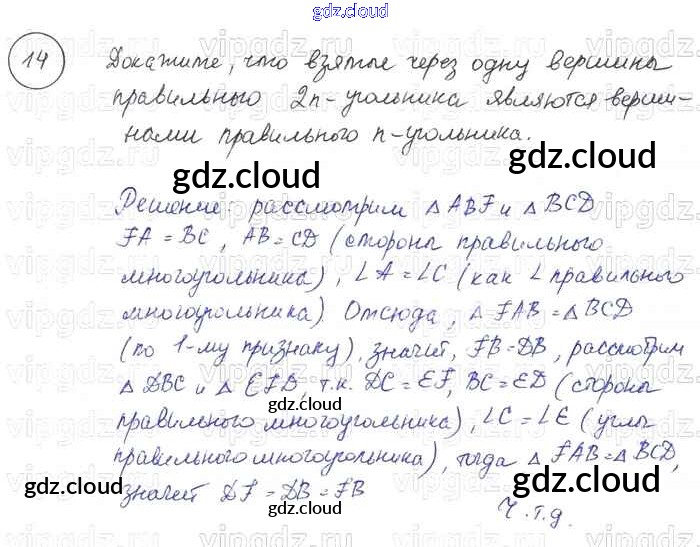 gdz.cloud
14 Докажите, что взятые через одну вершины
правильного 2n-угольника являются верши-
нами правильного n-угольника.
gdz.cloud gdz.cloud
Решение: рассмотрим △ ABF и △ BCD
FA = BC, AB = CD (стороны правильного
многоугольника), ∠A = ∠C (как ∠ правильного
многоугольника). Отсюда, △ FAB = △ BCD
(по 1-му признаку), значит, FB = DB, рассмотрим
△ DBC и △ EFD, т.к. DC = EF, BC = ED (стороны
gdz.cloud
правильного многоугольника), ∠C = ∠E (углы
правильного многоугольника), тогда △ FAB = △ BCD,
gdz.cloud gdz.cloud
значит DF = DB = FB
Ч.т.д.